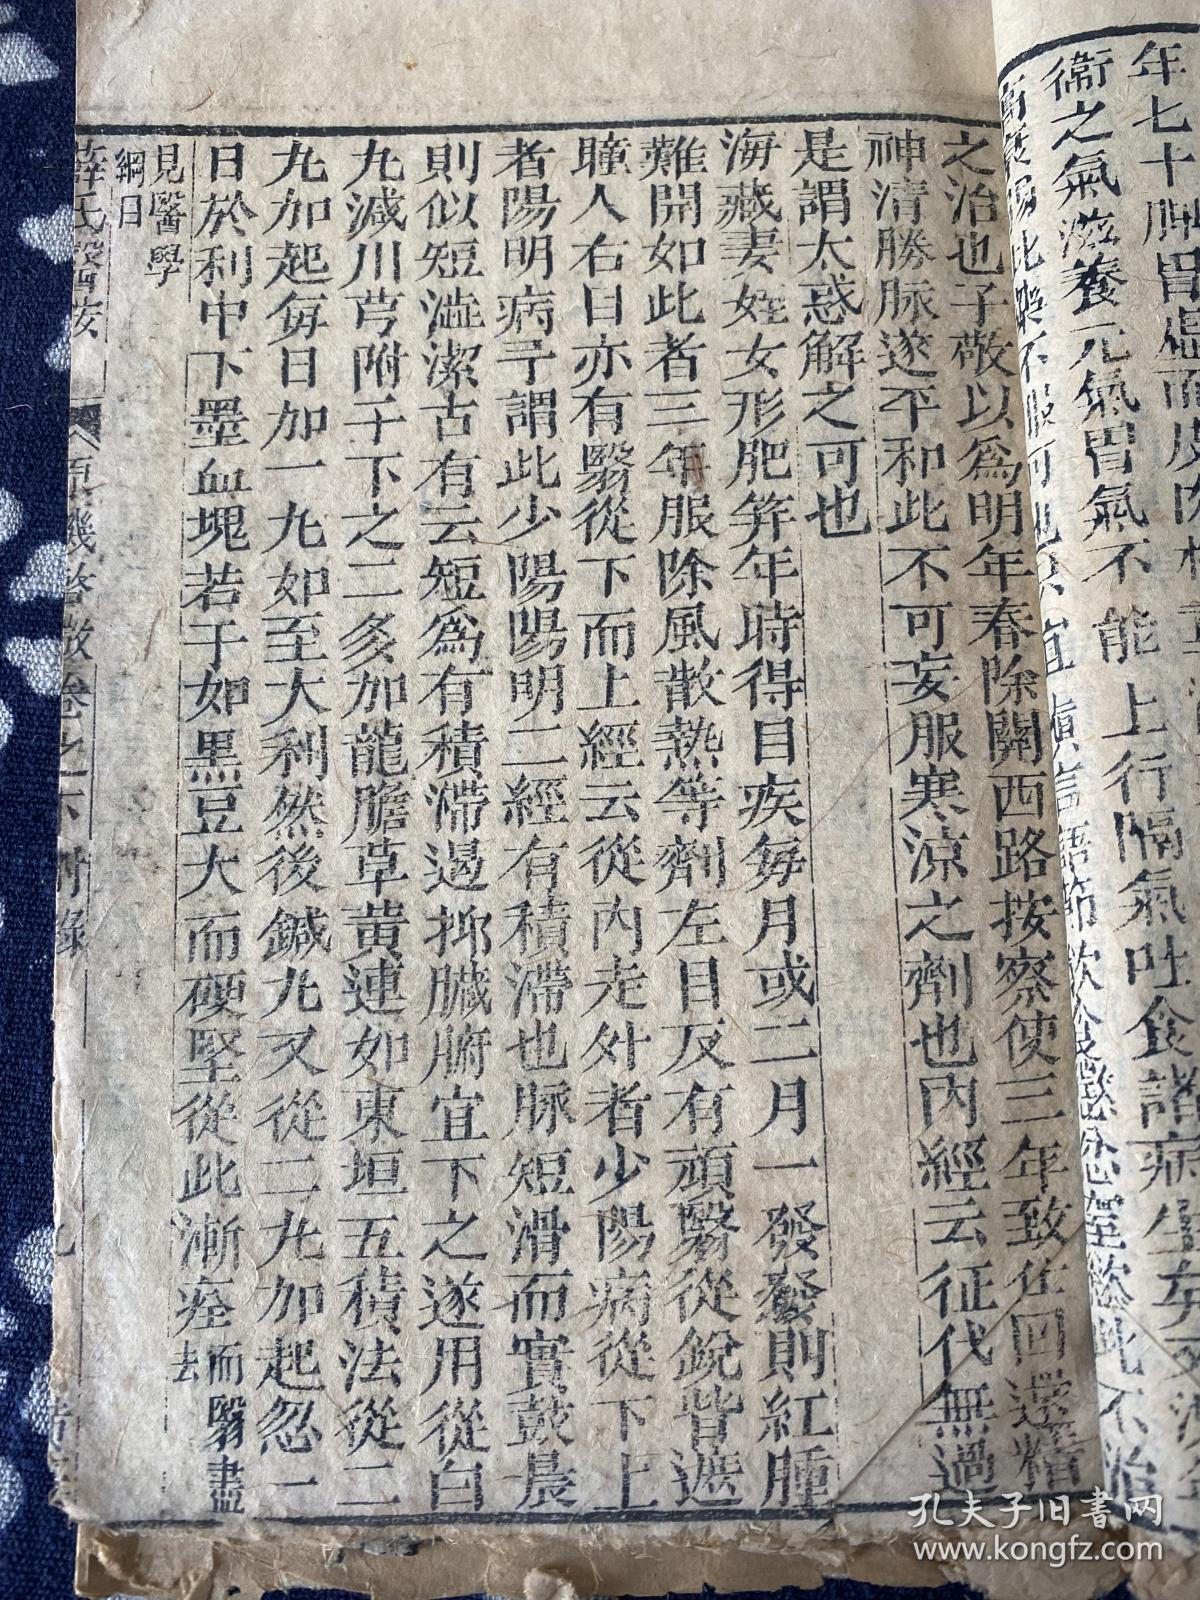 年七十脾胃虛而皮肉
衞之氣滋養元氣胃氣不能上行隔氣吐食諸病生矣
不服何
之治也子敬以爲明年春除關西路按察使三年致仕回還精
神清勝脉遂平和此不可妄服寒凉之劑也內經云征代無過
是謂太惑解之可也
海藏妻姪女形肥笄年時得目疾每月或二月一發發則紅腫
難開如此者三年服除風散熱等劑左目反有頑翳從銳眥遮
瞳人右目亦有翳從下而上經云從內走外者少陽病從下上
者陽明病予謂此少陽陽明二經有積滯也脉短滑而實鼓晨
則似短澁潔古有云短爲有積滯遏抑臟腑宜下之遂用從白
丸減川芎附子下之二多加龍膽草黃連如東垣五積法從二
丸加起每日加一丸如至大利然後鍼丸又從二丸加起忽一
日於利中下墨血塊若干如黑豆大而硬堅從此漸痊而翳盡去
見醫學
綱目
薛氏醫按
原機啓微卷之下附錄
孔夫子旧書网
www.kongfz.com